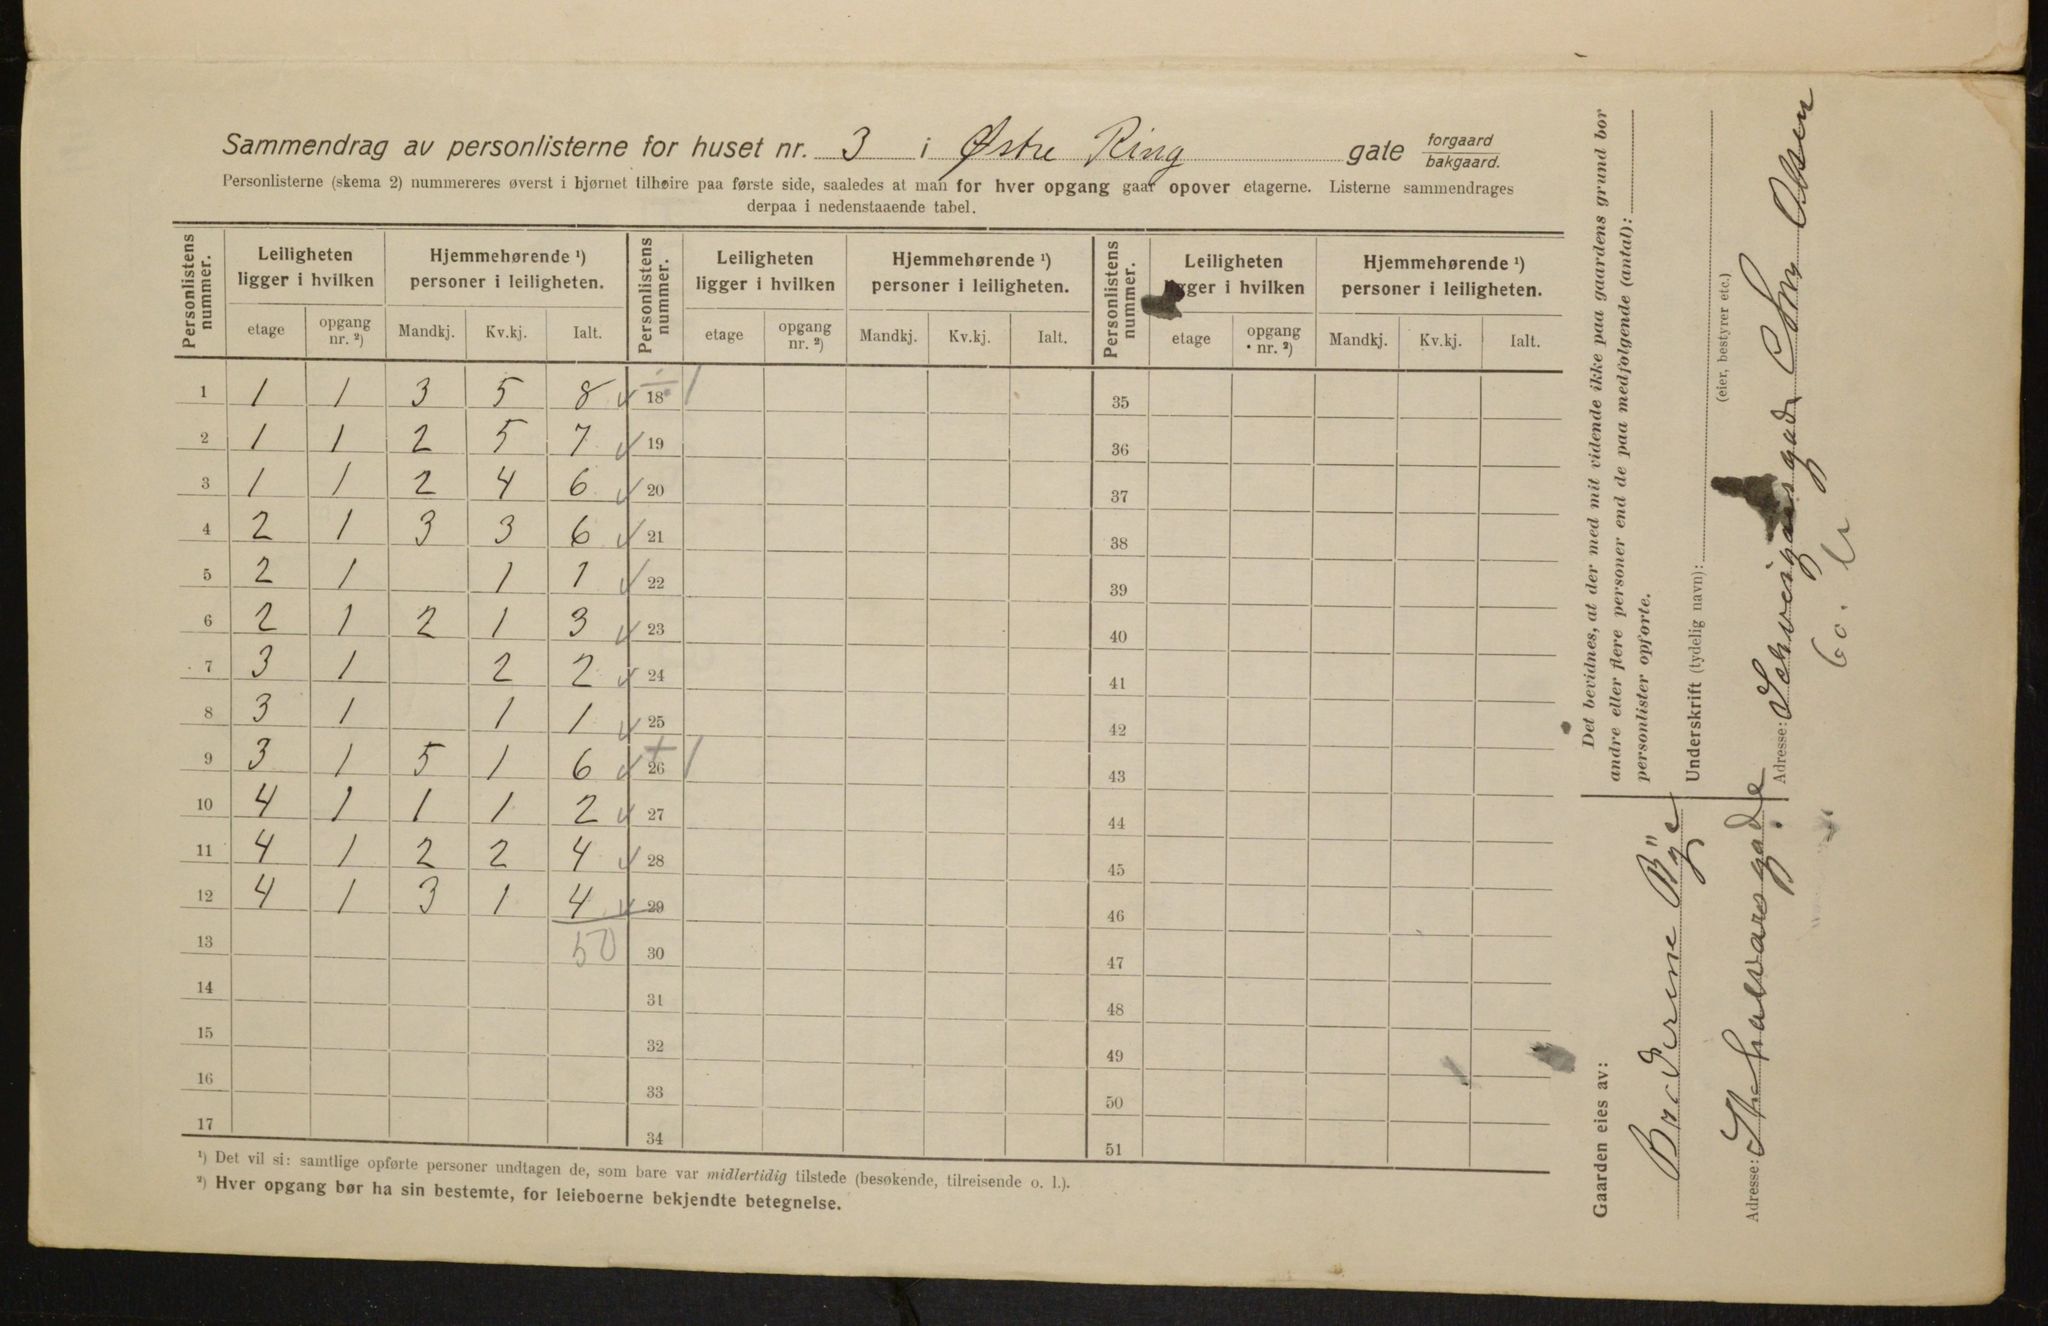 Sammendrag av personlisterne for huset nr. 3 i Østre Ring gate forgaard bakgaard.
Personlisterne (skema 2) nummereres øverst i hjørnet tilhøire paa første side, saaledes at man for hver opgang gaar opover etagerne. Listerne sammendrages
derpaa i nedenstaaende tabel.
Personlistens nummer. Leiligheten ligger i hvilken Hjemmehørende ¹) personer i leiligheten. Personlistens nummer. Leiligheten ligger i hvilken Hjemmehørende ¹) personer i leiligheten. Personlistens nummer. Leiligheten ligger i hvilken Hjemmehørende ¹) personer i leiligheten.
etage opgang nr. ²) Mandkj. Kv.kj. Ialt. etage opgang nr. ²) Mandkj. Kv.kj. Ialt. etage opgang nr. ²) Mandkj. Kv.kj. Ialt.
1 1 1 3 5 8 18 35
2 1 1 2 5 7 19 36
3 1 1 2 4 6 20 37
4 2 1 3 3 6 21 38
5 2 1 1 1 22 39
6 2 1 2 1 3 23 40
7 3 1 2 2 24 41
8 3 1 1 1 25 42
9 3 1 5 1 6 26 43
10 4 1 1 1 2 27 44
11 4 1 2 2 4 28 45
12 4 1 3 1 4 29 46
13 50 30 47
14 31 48
15 32 49
16 33 50
17 34 51
¹) Det vil si: samtlige opførte personer undtagen de, som bare var midlertidig tilstede (besøkende, tilreisende o. l.).
²) Hver opgang bør ha sin bestemte, for leieboerne bekjendte betegnelse.
Det bevidnes, at der med mit vidende ikke paa gaardens grund bor
andre eller flere personer end de paa medfølgende (antal):
personlister opførte.
Underskrift (tydelig navn):
(eier, bestyrer etc.)
Chr Olsen
Adresse: Schveigaardsgade
60. b
Gaarden eies av:
Brødrene Bÿe
Adresse: St halvarsgade